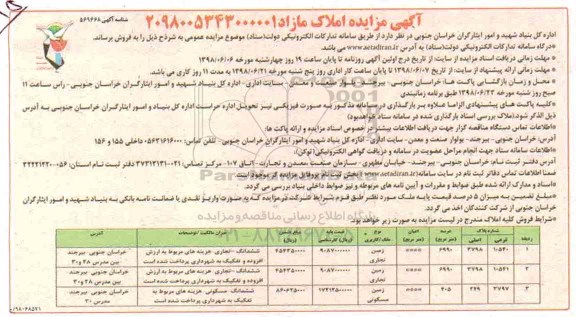 شناسه آگهی ۵۶۹۶۶۸
آگهی مزایده املاک مازاد ۲۰۹۸۰۰۵۳۴۳۰۰۰۰۰۱
اداره کل بنیاد شهید و امور ایثارگران خراسان جنوبی در نظر دارد از طریق سامانه تدارکات الکترونیکی دولت (ستاد) موضوع مزایده عمومی به شرح ذیل را به فروش برساند.
*درگاه سامانه تدارکات الکترونیکی دولت (ستاد) به آدرس www.setadiran.ir می باشد.
*مهلت زمانی دریافت اسناد مزایده از سایت: از تاریخ درج اولین آگهی روزنامه تا پایان ساعت ۱۹ روز چهارشنبه مورخه ۱۳۹۸/۰۶/۰۶
*مهلت زمانی ارائه پیشنهاد از سایت: از تاریخ ۱۳۹۸/۰۶/۰۷ تا پایان ساعت کار اداری روز پنج شنبه مورخه ۱۳۹۸/۰۶/۲۱ به مدت ۱۱ روز کاری می باشد.
*محل و زمان بازگشایی پاکت ها: خراسان جنوبی - بیرجند - بلوار صنعت و معدن - سایت اداری - اداره کل بنیاد شهید و امور ایثارگران خراسان جنوبی - راس ساعت ۱۱
صبح روز شنبه مورخه ۱۳۹۸/۰۶/۲۳ طبق برنامه زمانبندی
*کلیه پاکت های پیشنهادی الزاما علاوه بر بارگذاری در سامانه مذکور به صورت فیزیکی نیز تحویل اداره حراست اداره کل بنیاد و امور ایثارگران خراسان جنوبی به آدرس
ذیل الذکر شود. (ملاک بررسی اسناد بارگذاری شده در سامانه ستاد خواهد بود)
*اطلاعات تماس دستگاه مناقصه گزار جهت دریافت اطلاعات بیشتر در خصوص اسناد مزایده و ارائه پاکت ها:
آدرس: خراسان جنوبی - بیرجند - بلوار صنعت و معدن - سایت اداری - اداره کل بنیاد شهید و امور ایثارگران خراسان جنوبی - تلفن تماس: ۰۵۶۳۱۶۱۶۰۰۰ داخلی ۱۵۵ و ۱۵۶
*اطلاعات تماس سامانه ستاد جهت انجام مراحل عضویت در سامانه و دریافت گواهی الکترونیکی (توکن)
آدرس دفتر ثبت نام: خراسان جنوبی - بیرجند - خیابان مطهری - سازمان صنعت معدن و تجارت - اتاق ۱۰۷
*اسناد و مدارک ارائه شده طبق ضوابط و مقررات و آیین نامه های مربوطه و نیز ضوابط داخلی بنیاد بررسی می گردد.
*مبلغ تضمین به میزان ۵ درصد قیمت پایه ملک مورد نظر طبق فرم شرایط شرکت در مزایده که به صورت واریز نقدی یا ضمانت نامه بانکی به بنیاد شهید و امور ایثارگران
خراسان جنوبی از شرکت کنندگان اخذ می گردد.
*شرایط فروش کلیه املاک مندرج در لیست مزایده به صورت زیر خواهد بود.
ردیف پلاک فرعی اصلی آدرس
۱ ۱۰۵۴۰ ۳۷۹۸ ۶۹۹۰ زمین تجاری ۹۰۸۷۰۰۰۰۰۰ ۴۵۴۳۵۰۰۰۰ ششدانگ - تجاری - هزینه های مربوط به ارزش افزوده و تفکیک به شهرداری پرداخت شده است خراسان جنوبی - بیرجند بین مدرس ۲۸ و ۳۰
۲ ۱۰۵۴۱ ۳۷۹۸ ۶۹۹۰ زمین تجاری ۹۰۸۷۰۰۰۰۰۰ ۴۵۴۳۵۰۰۰۰ ششدانگ - تجاری - هزینه های مربوط به ارزش افزوده و تفکیک به شهرداری پرداخت شده است خراسان جنوبی - بیرجند بین مدرس ۲۸ و ۳۰
۳ ۳۷۹۷ ۲۴۹ ۴۰۵ زمین مسکونی ششدانگ - مسکونی - هزینه های مربوط به تفکیک به شهرداری پرداخت شده است خراسان جنوبی - بیرجند مدرس ۳۰